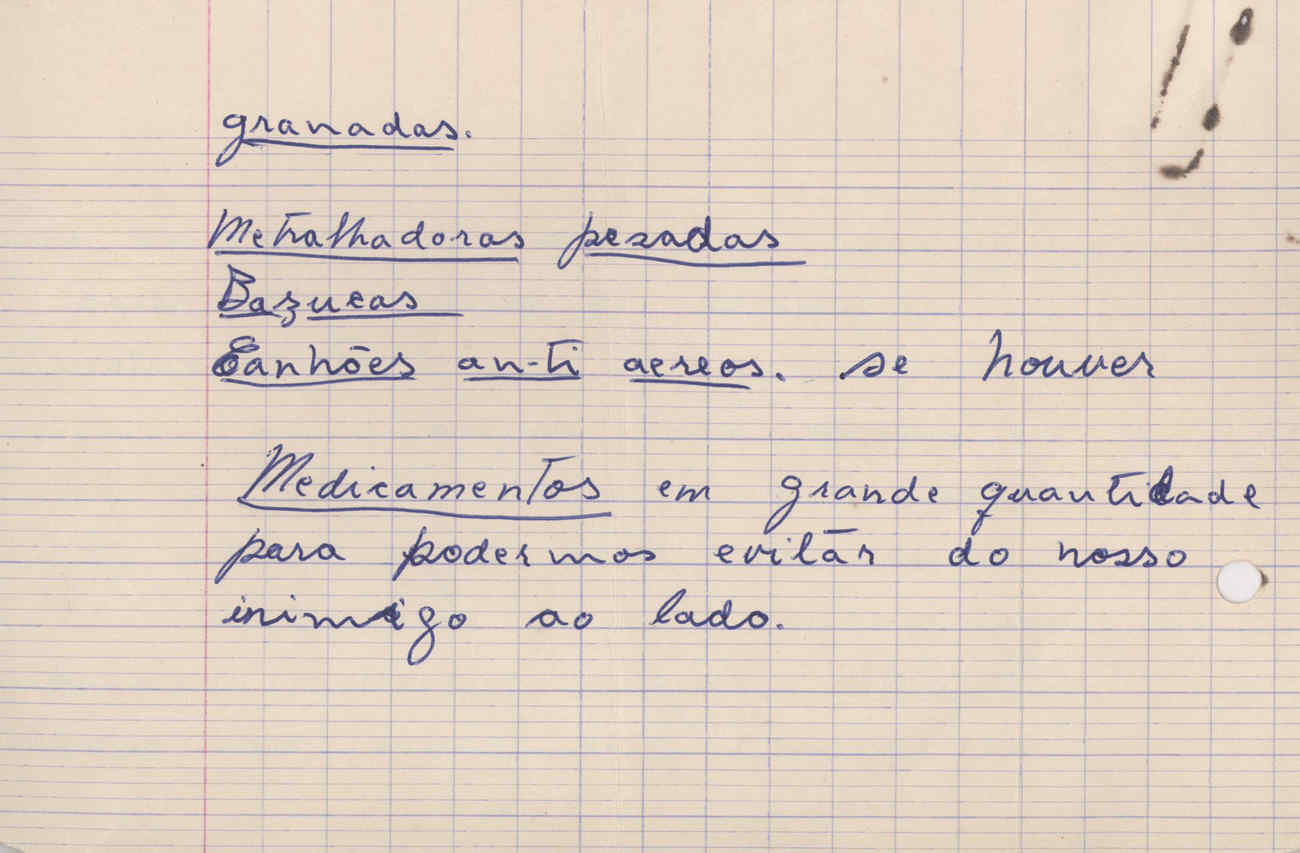 granadas.
Metralhadoras pezadas
Bazucas
Canhões an-ti aereos. se houver
Medicamentos em grande quantidade
para podermos evitār do nosso
inimigo ao lado.